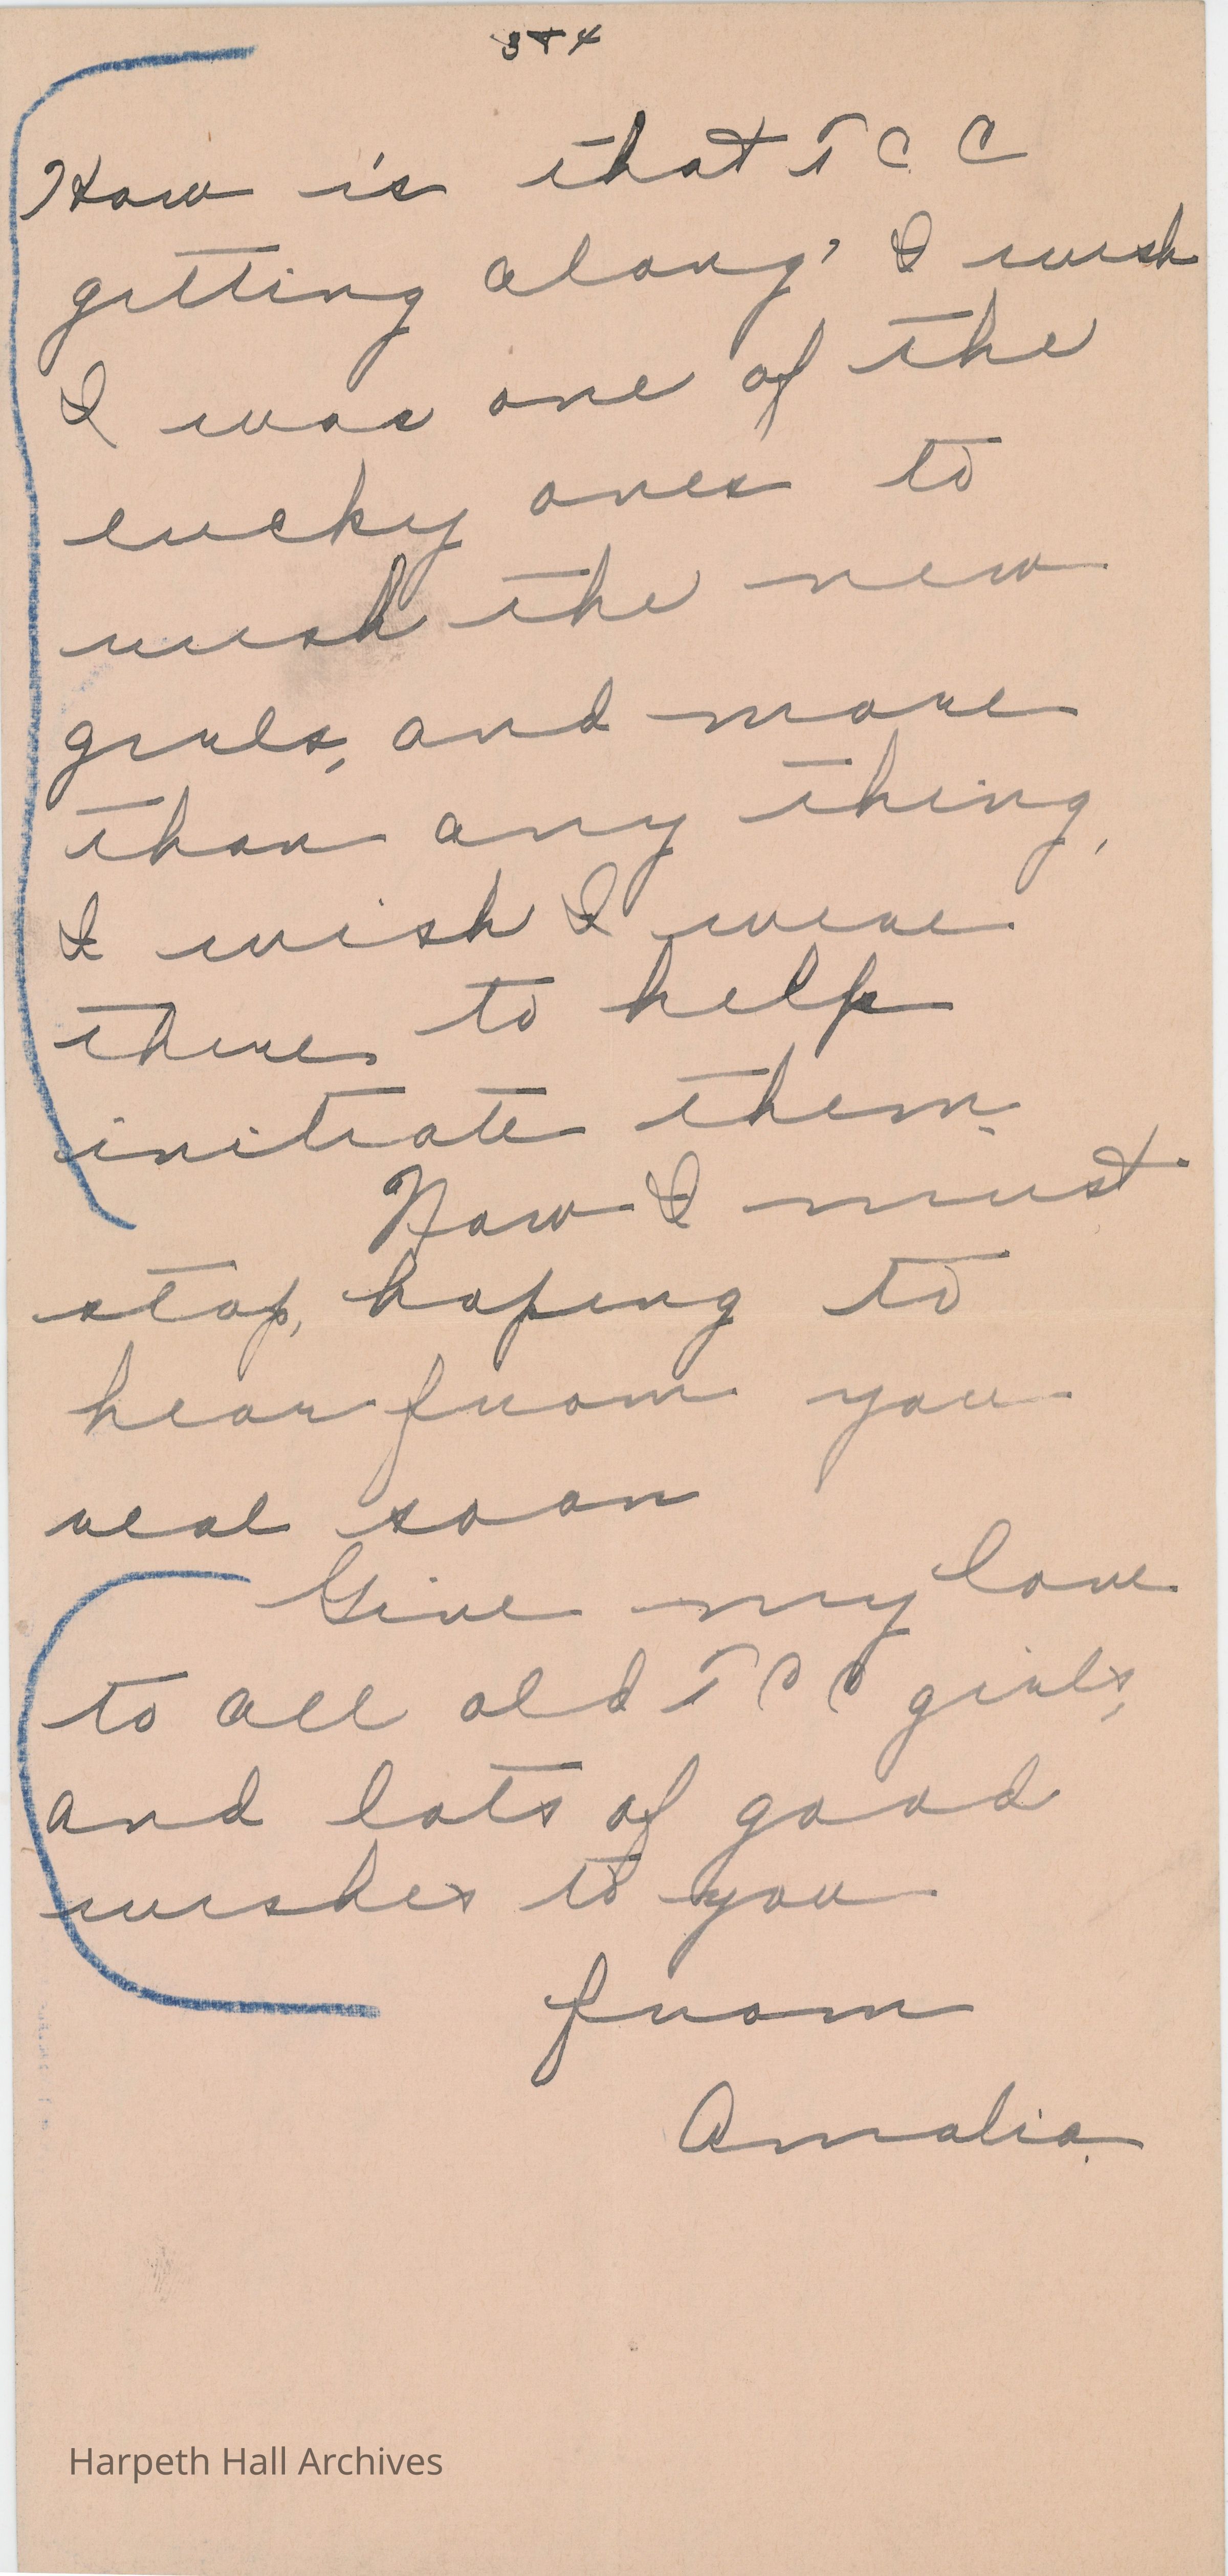 3 + 4
How is that T C C
getting along? I wish
I was one of the
lucky ones to
rush the new
girls, and more
than any thing,
I wish I were
there to help
initiate them.
Now I must
stop, hoping to
hear from you
real soon
Give my love
to all old T C C girls,
and lots of good
wishes to you
from
Amalia.
Harpeth Hall Archives